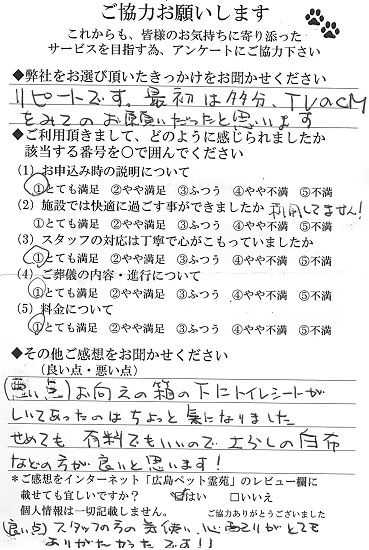 ご協力お願いします
これからも、皆様のお気持ちに寄り添った
サービスを目指す為、アンケートにご協力下さい
◆弊社をお選び頂いたきっかけをお聞かせください
リピートです。最初は多分、TVのCM
をみてのお願いだったと思います
◆ご利用頂きまして、どのように感じられましたか
該当する番号を〇で囲んでください
(1) お申込み時の説明について
①とても満足 ②やや満足 ③ふつう ④やや不満 ⑤不満
(2) 施設では快適に過ごす事ができましたか 利用してません!
①とても満足 ②やや満足 ③ふつう ④やや不満 ⑤不満
(3) スタッフの対応は丁寧で心がこもっていましたか
①とても満足 ②やや満足 ③ふつう ④やや不満 ⑤不満
(4) ご葬儀の内容・進行について
①とても満足 ②やや満足 ③ふつう ④やや不満 ⑤不満
(5) 料金について
①とても満足 ②やや満足 ③ふつう ④やや不満 ⑤不満
◆その他ご感想をお聞かせください
(良い点・悪い点)
(悪い点)お向えの箱の下にトイレシートが
しいてあったのはちょっと気になりました
せめても 有料でもいいので さらしの白布
などの方が良いと思います!
*ご感想をインターネット「広島ペット霊苑」のレビュー欄に
載せても宜しいですか? ☑はい □いいえ
個人情報は一切記載しません。 ご協力ありがとうございました
(良い点) スタッフの方の気使い、心配りがとても
ありがたかったです!!